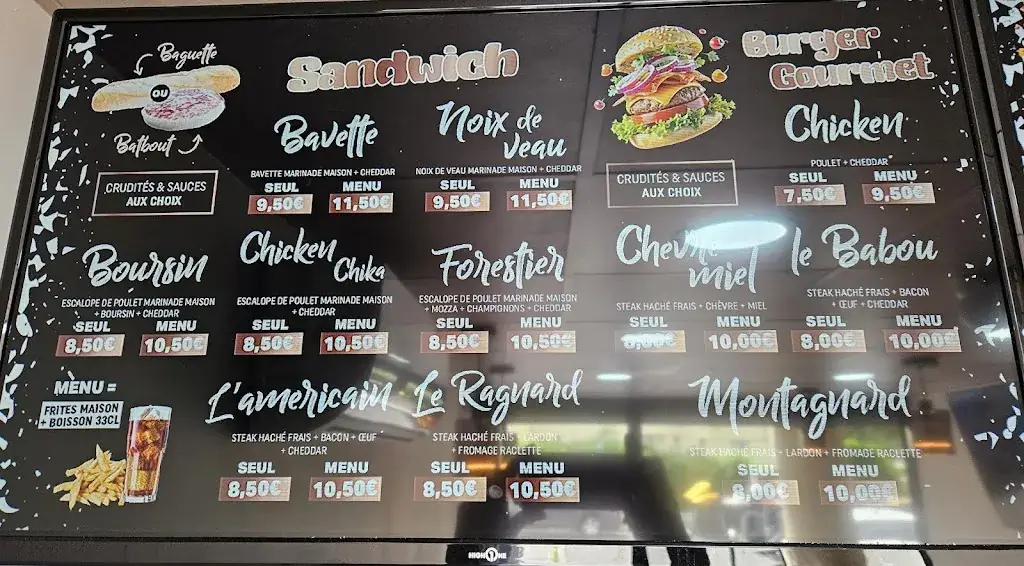 Baguette
OU
Batbout
Sandwich
CRUDITÉS & SAUCES
AUX CHOIX
Bavette
BAVETTE MARINADE MAISON + CHEDDAR
SEUL MENU
9,50€ 11,50€
Noix de
veau
NOIX DE VEAU MARINADE MAISON + CHEDDAR
SEUL MENU
9,50€ 11,50€
Boursin
ESCALOPE DE POULET MARINADE MAISON
+ BOURSIN + CHEDDAR
SEUL MENU
8,50€ 10,50€
Chicken
Chika
ESCALOPE DE POULET MARINADE MAISON
+ CHEDDAR
SEUL MENU
8,50€ 10,50€
Forestier
ESCALOPE DE POULET MARINADE MAISON
+ MOZZA + CHAMPIGNONS + CHEDDAR
SEUL MENU
8,50€ 10,50€
MENU =
FRITES MAISON
+ BOISSON 33CL
L'americain
STEAK HACHÉ FRAIS + BACON + ŒUF
+ CHEDDAR
SEUL MENU
8,50€ 10,50€
Le Ragnard
STEAK HACHÉ FRAIS + LARDON
+ FROMAGE RACLETTE
SEUL MENU
8,50€ 10,50€
Burger
Gourmet
CRUDITÉS & SAUCES
AUX CHOIX
Chicken
POULET + CHEDDAR
SEUL MENU
7,50€ 9,50€
Chevre
miel
STEAK HACHÉ FRAIS + CHÈVRE + MIEL
SEUL MENU
10,00€
le Babou
STEAK HACHÉ FRAIS + BACON
+ ŒUF + CHEDDAR
SEUL MENU
8,00€ 10,00€
Montagnard
STEAK HACHÉ FRAIS + LARDON + FROMAGE RACLETTE
SEUL MENU
8,00€ 10,00€
HIGH ONE